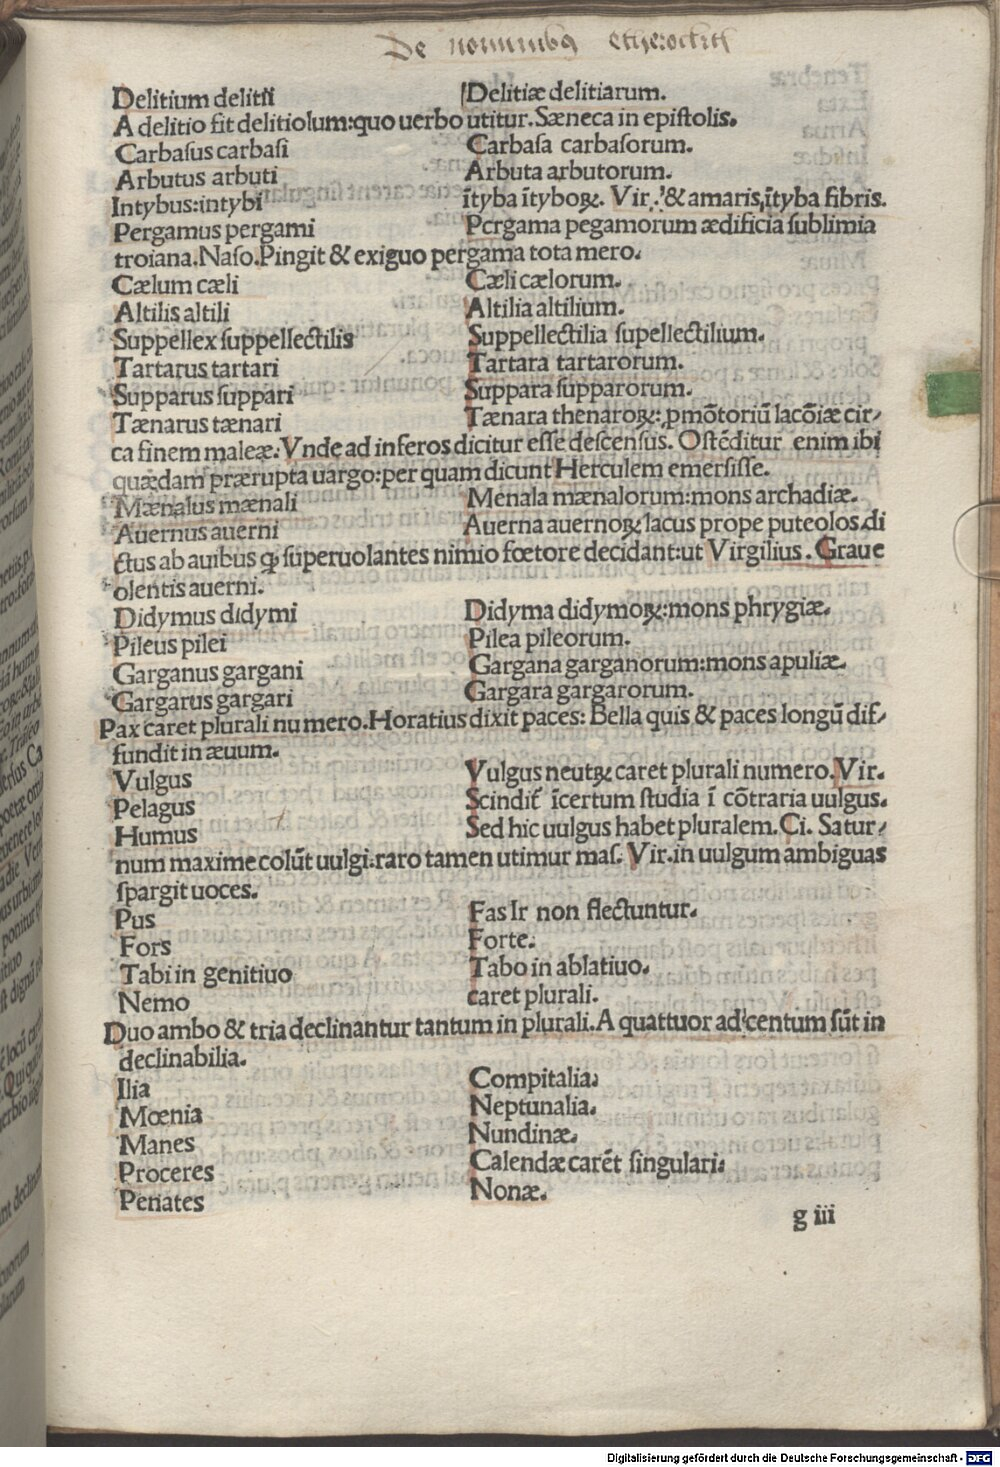 De nominibus etheroclitis
Delitium delitii Delitiæ delitiarum.
A delitio fit delitiolum:quo uerbo utitur. Sæneca in epiſtolis.
Carbaſus carbaſi Carbaſa carbaſorum.
Arbutus arbuti Arbuta arbutorum.
Intybus:intybi ītyba ītyboꝝ. Vir.'& amaris ītyba fibris.
Pergamus pergami Pergama pegamorum ædificia ſublimia
troiana. Naſo. Pingit & exiguo pergama tota mero.
Cælum cæli Cæli cælorum.
Altilis altili Altilia altilium.
Suppellex ſuppellectilis Suppellectilia ſupellectilium.
Tartarus tartari Tartara tartarorum.
Supparus ſuppari Suppara ſupparorum.
Tænarus tænari Tænara thenaroꝝ: ꝓmōtoriū lacōiæ cir/
ca finem maleæ. Vnde ad inferos dicitur eſſe deſcenſus. Oſtēditur enim ibi
quædam prærupta uargo:per quam dicunt Herculem emerſiſſe.
Mænalus mænali Menala mænalorum:mons archadiæ.
Auernus auerni Auerna auernoꝝ lacus prope puteolos di
ctus ab auibus ꝙ ſuperuolantes nimio fœtore decidant:ut Virgilius. Graue
olentis auerni.
Didymus didymi Didyma didymoꝝ:mons phrygiæ.
Pileus pilei Pilea pileorum.
Garganus gargani Gargana garganorum:mons apuliæ.
Gargarus gargari Gargara gargarorum.
Pax caret plurali numero. Horatius dixit paces: Bella quis & paces longū dif/
fundit in æuum.
Vulgus Vulgus neutꝝ caret plurali numero. Vir.
Pelagus Scindit̃ īcertum ſtudia ī cōtraria uulgus.
Humus Sed hic uulgus habet pluralem. Ci. Satur/
num maxime colūt uulgi.raro tamen utimur maſ. Vir.in uulgum ambiguas
ſpargit uoces.
Pus Fas Ir non flectuntur.
Fors Forte.
Tabi in genitiuo Tabo in ablatiuo.
Nemo caret plurali.
Duo ambo & tria declinantur tantum in plurali. A quattuor ad centum ſūt in
declinabilia.
Ilia Compitalia.
Mœnia Neptunalia.
Manes Nundinæ.
Proceres Calendæ carēt ſingulari.
Penates Nonæ.
g iii
Digitalisierung gefördert durch die Deutsche Forschungsgemeinschaft - DFG